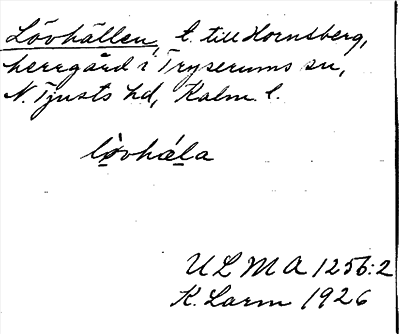 Lövhällen, t. till Hornsberg,
herrgård i Tryserums sn,
N. Tjusts hd, Kalm. l.
lövhæla
ULMA 1256:2
K. Larm 1926